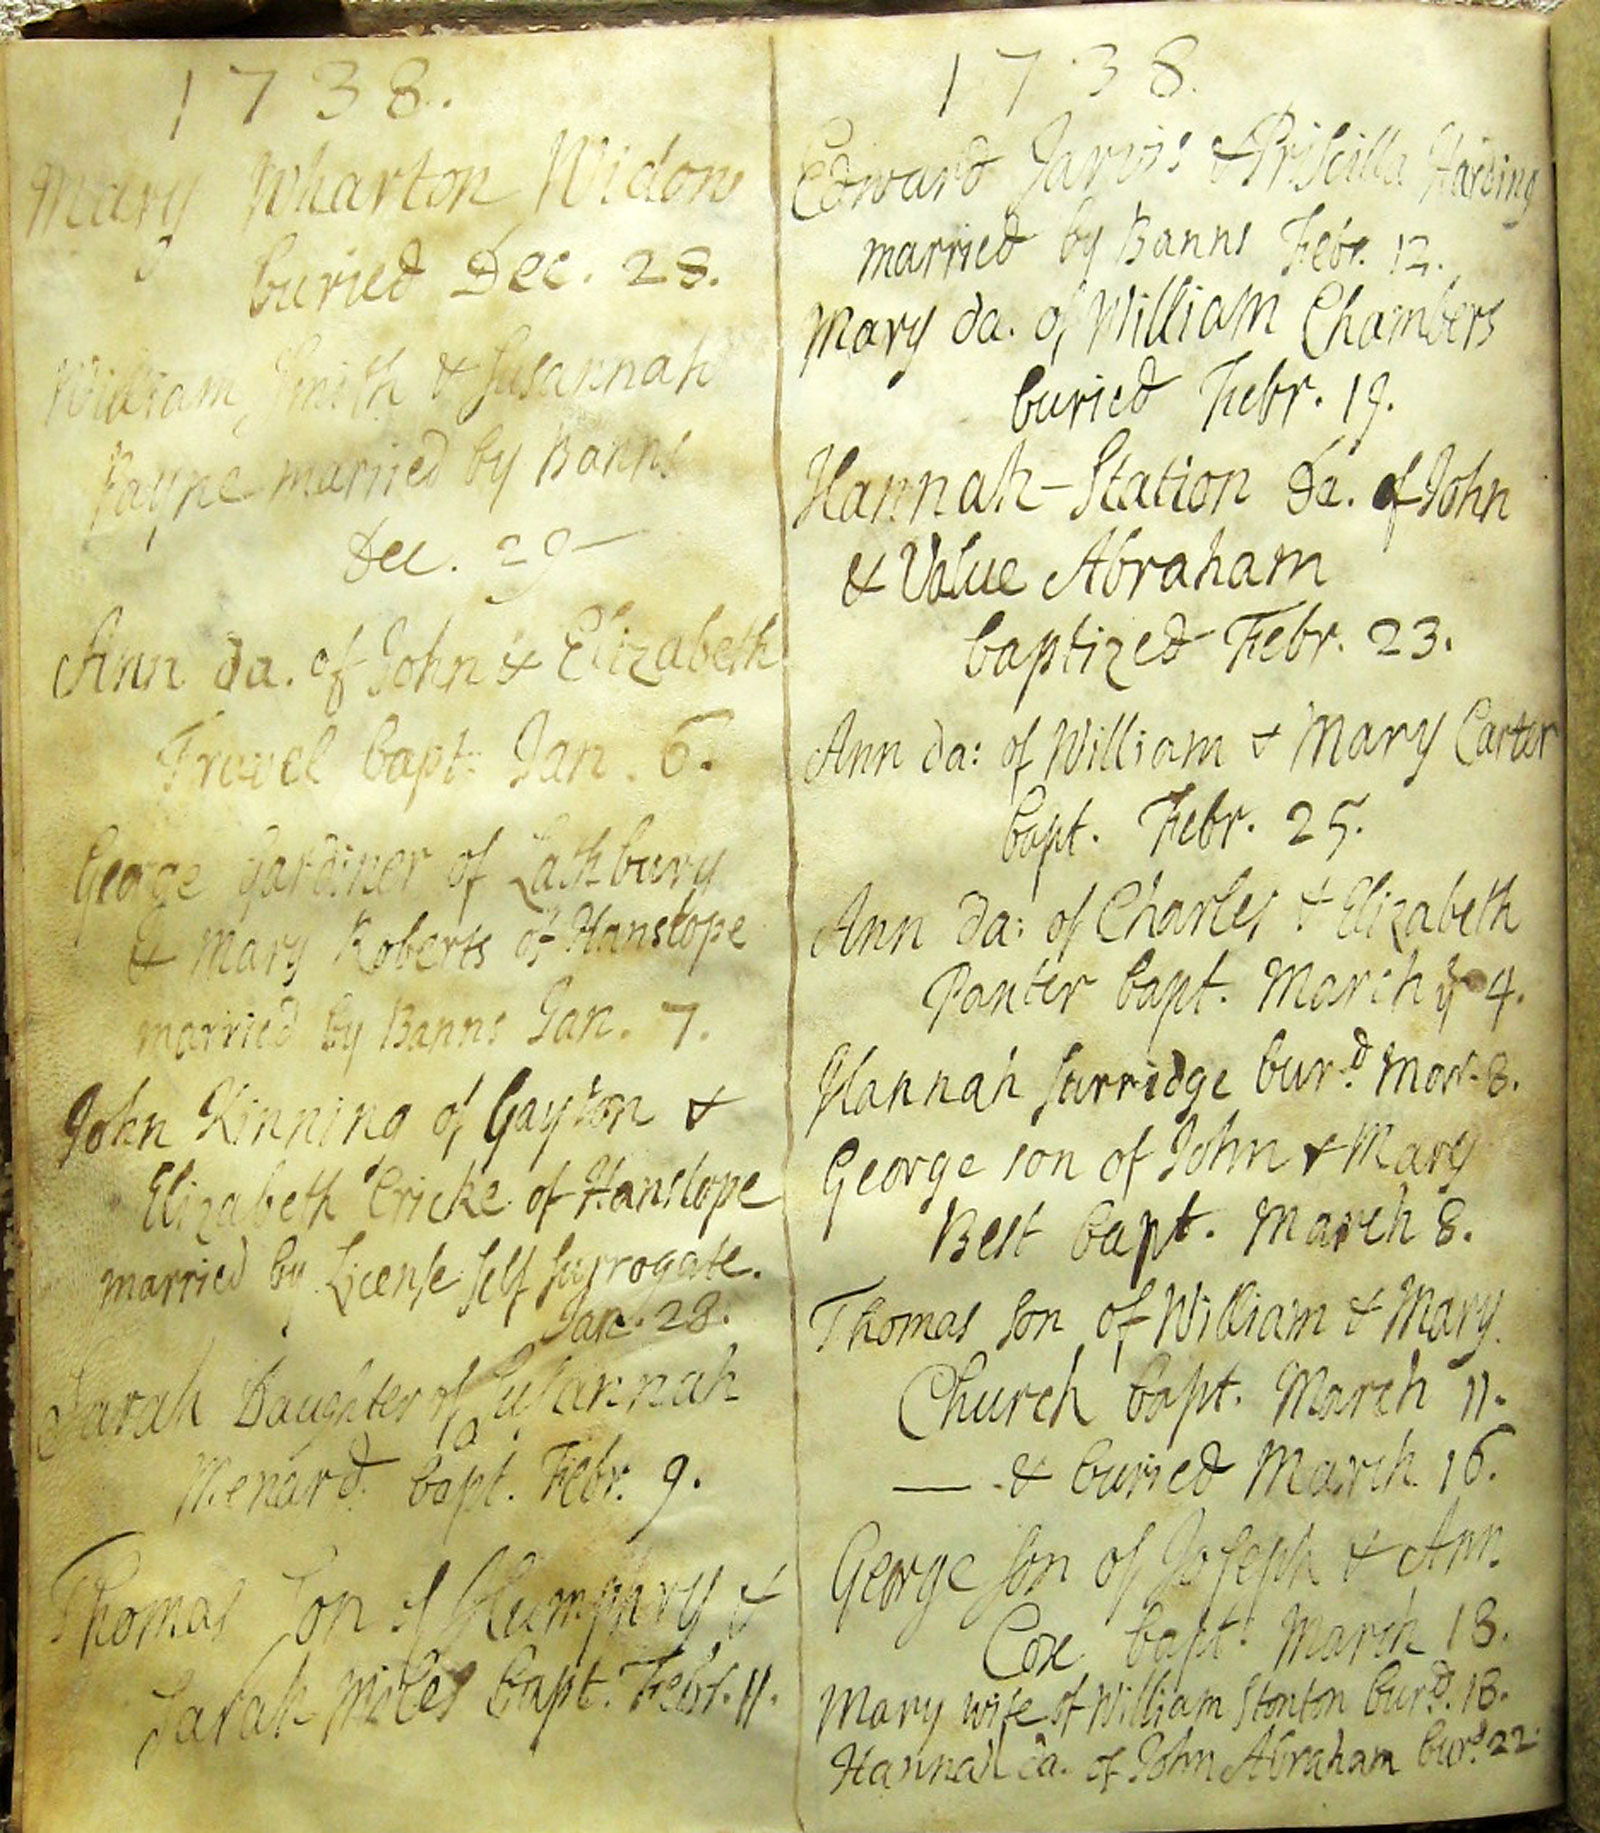 1738.
Mary Wharton Widow
buried Dec. 28.
William Smith & Susannah
Payne married by Banns
Dec. 29
Ann da. of John & Elizabeth
Frovel bapt: Jan. 6.
George Gardiner of Lathbury
& Mary Roberts of Hanslope
married by Banns Jan. 7.
John Kinning of Gayton &
Elizabeth Cricke of Hanslope
married by License self surrogate.
Jan. 28.
Sarah Daughter of Susannah
Menard bapt. Febr. 9.
Thomas Son of Humphry &
Sarah Miles bapt. Febr. 11.
1738.
Edward Jarvis & Priscilla Harding
married by Banns Febr. 12.
Mary da. of William Chambers
buried Febr. 19.
Hannah-Station da. of John
& Value Abraham
baptized Febr. 23.
Ann da: of William & Mary Carter
bapt. Febr. 25.
Ann da: of Charles & Elizabeth
Panter bapt. March ye 4.
Hannah Surridge burd. Mar. 8.
George son of John & Mary
Best bapt. March 8.
Thomas son of William & Mary
Church bapt. March 11.
— & buried March 16.
George son of Joseph & Ann
Cox bapt. March 18.
Mary wife of William Stonton burd. 18.
Hannah da. of John Abraham burd 22.